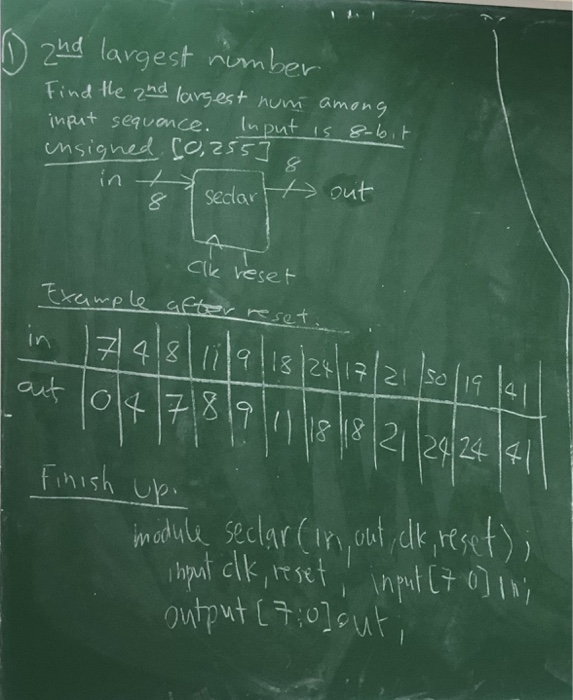 ① 2nd largest number
Find the 2nd largest num among
input sequence. Input is 8-bit
unsigned [0,255]
8
in seclar out
8
clk reset
Example after reset.
in 7 4 8 11 9 18 24 17 21 50 19 41
out 0 4 7 8 9 11 18 18 21 24 24 41
Finish up.
module seclar(in,out,clk,reset);
input clk,reset, input[7 0] in;
output [7:0] out,